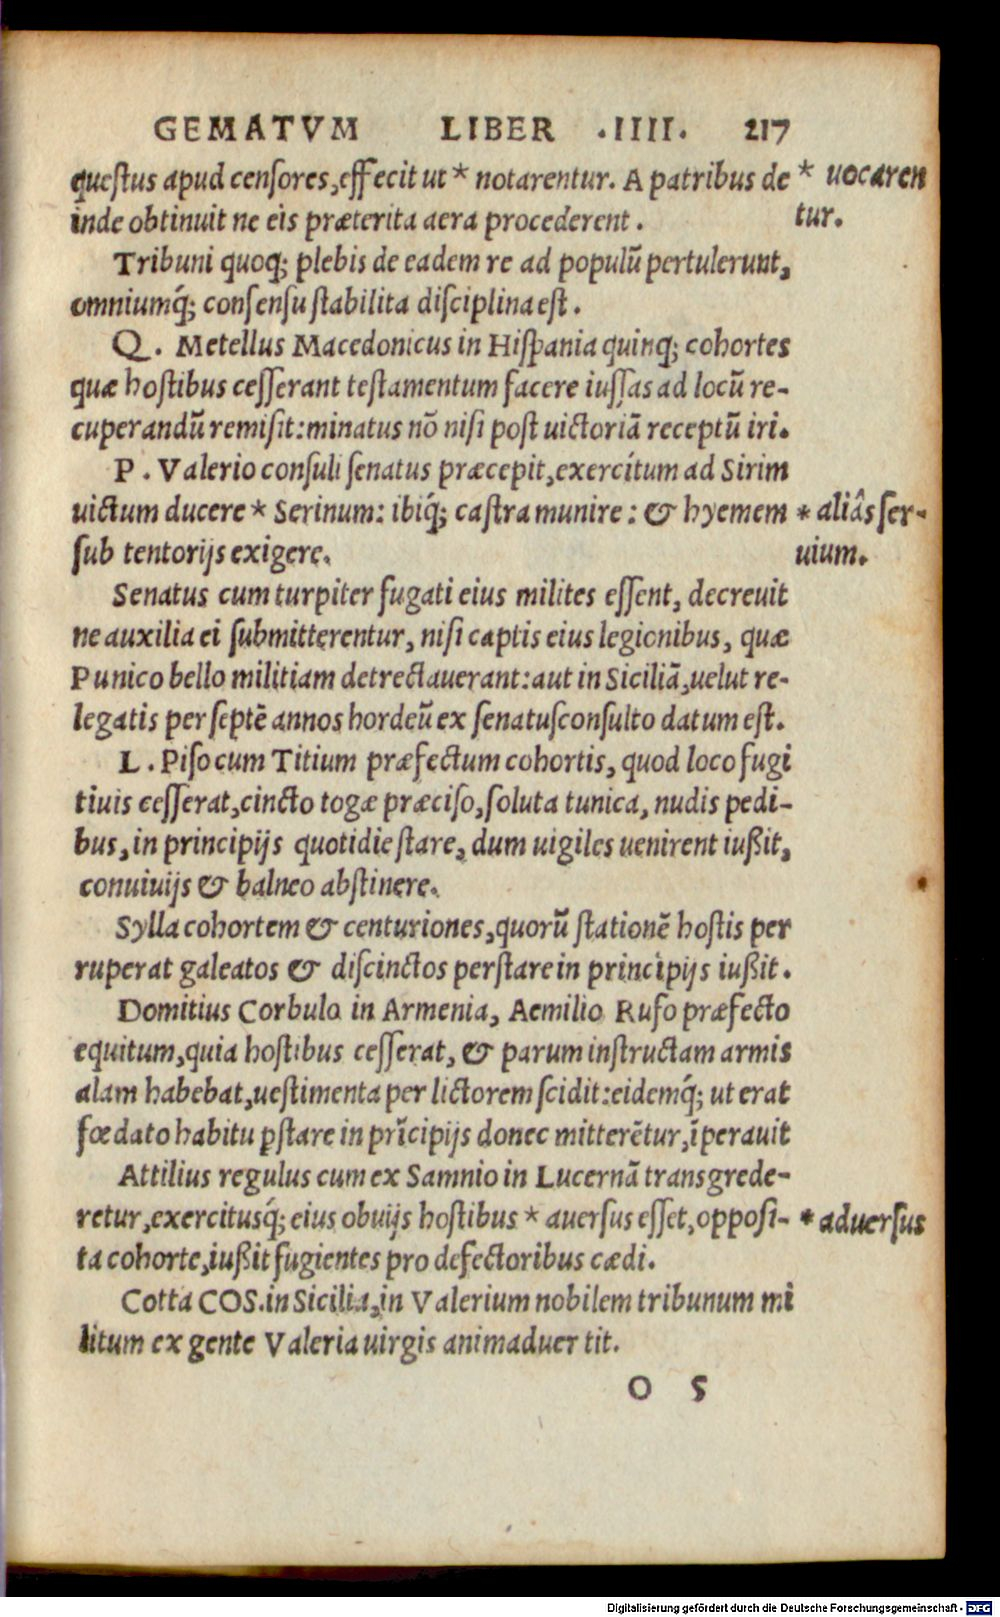 GEMATVM LIBER .IIII. 217
questus apud censores, effecit ut * notarentur. A patribus de
inde obtinuit ne eis præterita aera procederent.
* uocaren
tur.
Tribuni quoq; plebis de eadem re ad populū pertulerunt,
omniumq́; consensu stabilita disciplina est.
Q. Metellus Macedonicus in Hispania quinq; cohortes
quæ hostibus cesserant testamentum facere iussas ad locū re-
cuperandū remisit: minatus nō nisi post uictoriā receptū iri.
P. Valerio consuli senatus præcepit, exercitum ad Sirim
uictum ducere * Serinum: ibiq́; castra munire: & hyemem
sub tentorijs exigere.
* aliâs ser-
uium.
Senatus cum turpiter fugati eius milites essent, decreuit
ne auxilia ei submitterentur, nisi captis eius legionibus, quæ
Punico bello militiam detrectauerant: aut in Siciliā, uelut re-
legatis per septē annos hordeū ex senatusconsulto datum est.
L. Piso cum Titium præfectum cohortis, quod loco fugi
tiuis cesserat, cincto togæ præciso, soluta tunica, nudis pedi-
bus, in principijs quotidie stare, dum uigiles uenirent iußit,
conuiuijs & balneo abstinere.
Sylla cohortem & centuriones, quorū stationē hostis per
ruperat galeatos & discinctos perstare in principijs iußit.
Domitius Corbulo in Armenia, Aemilio Rufo præfecto
equitum, quia hostibus cesserat, & parum instructam armis
alam habebat, uestimenta per lictorem scidit: eidemq́; ut erat
fœdato habitu ꝑstare in prīcipijs donec mitterētur, īperauit
Attilius regulus cum ex Samnio in Lucernā transgrede-
retur, exercitusq́; eius obuijs hostibus * auersus esset, opposi-
ta cohorte, iußit fugientes pro defectoribus cædi.
* aduersus
Cotta COS. in Sicilia, in Valerium nobilem tribunum mi
litum ex gente Valeria uirgis animaduer tit.
O 5
Digitalisierung gefördert durch die Deutsche Forschungsgemeinschaft - DFG